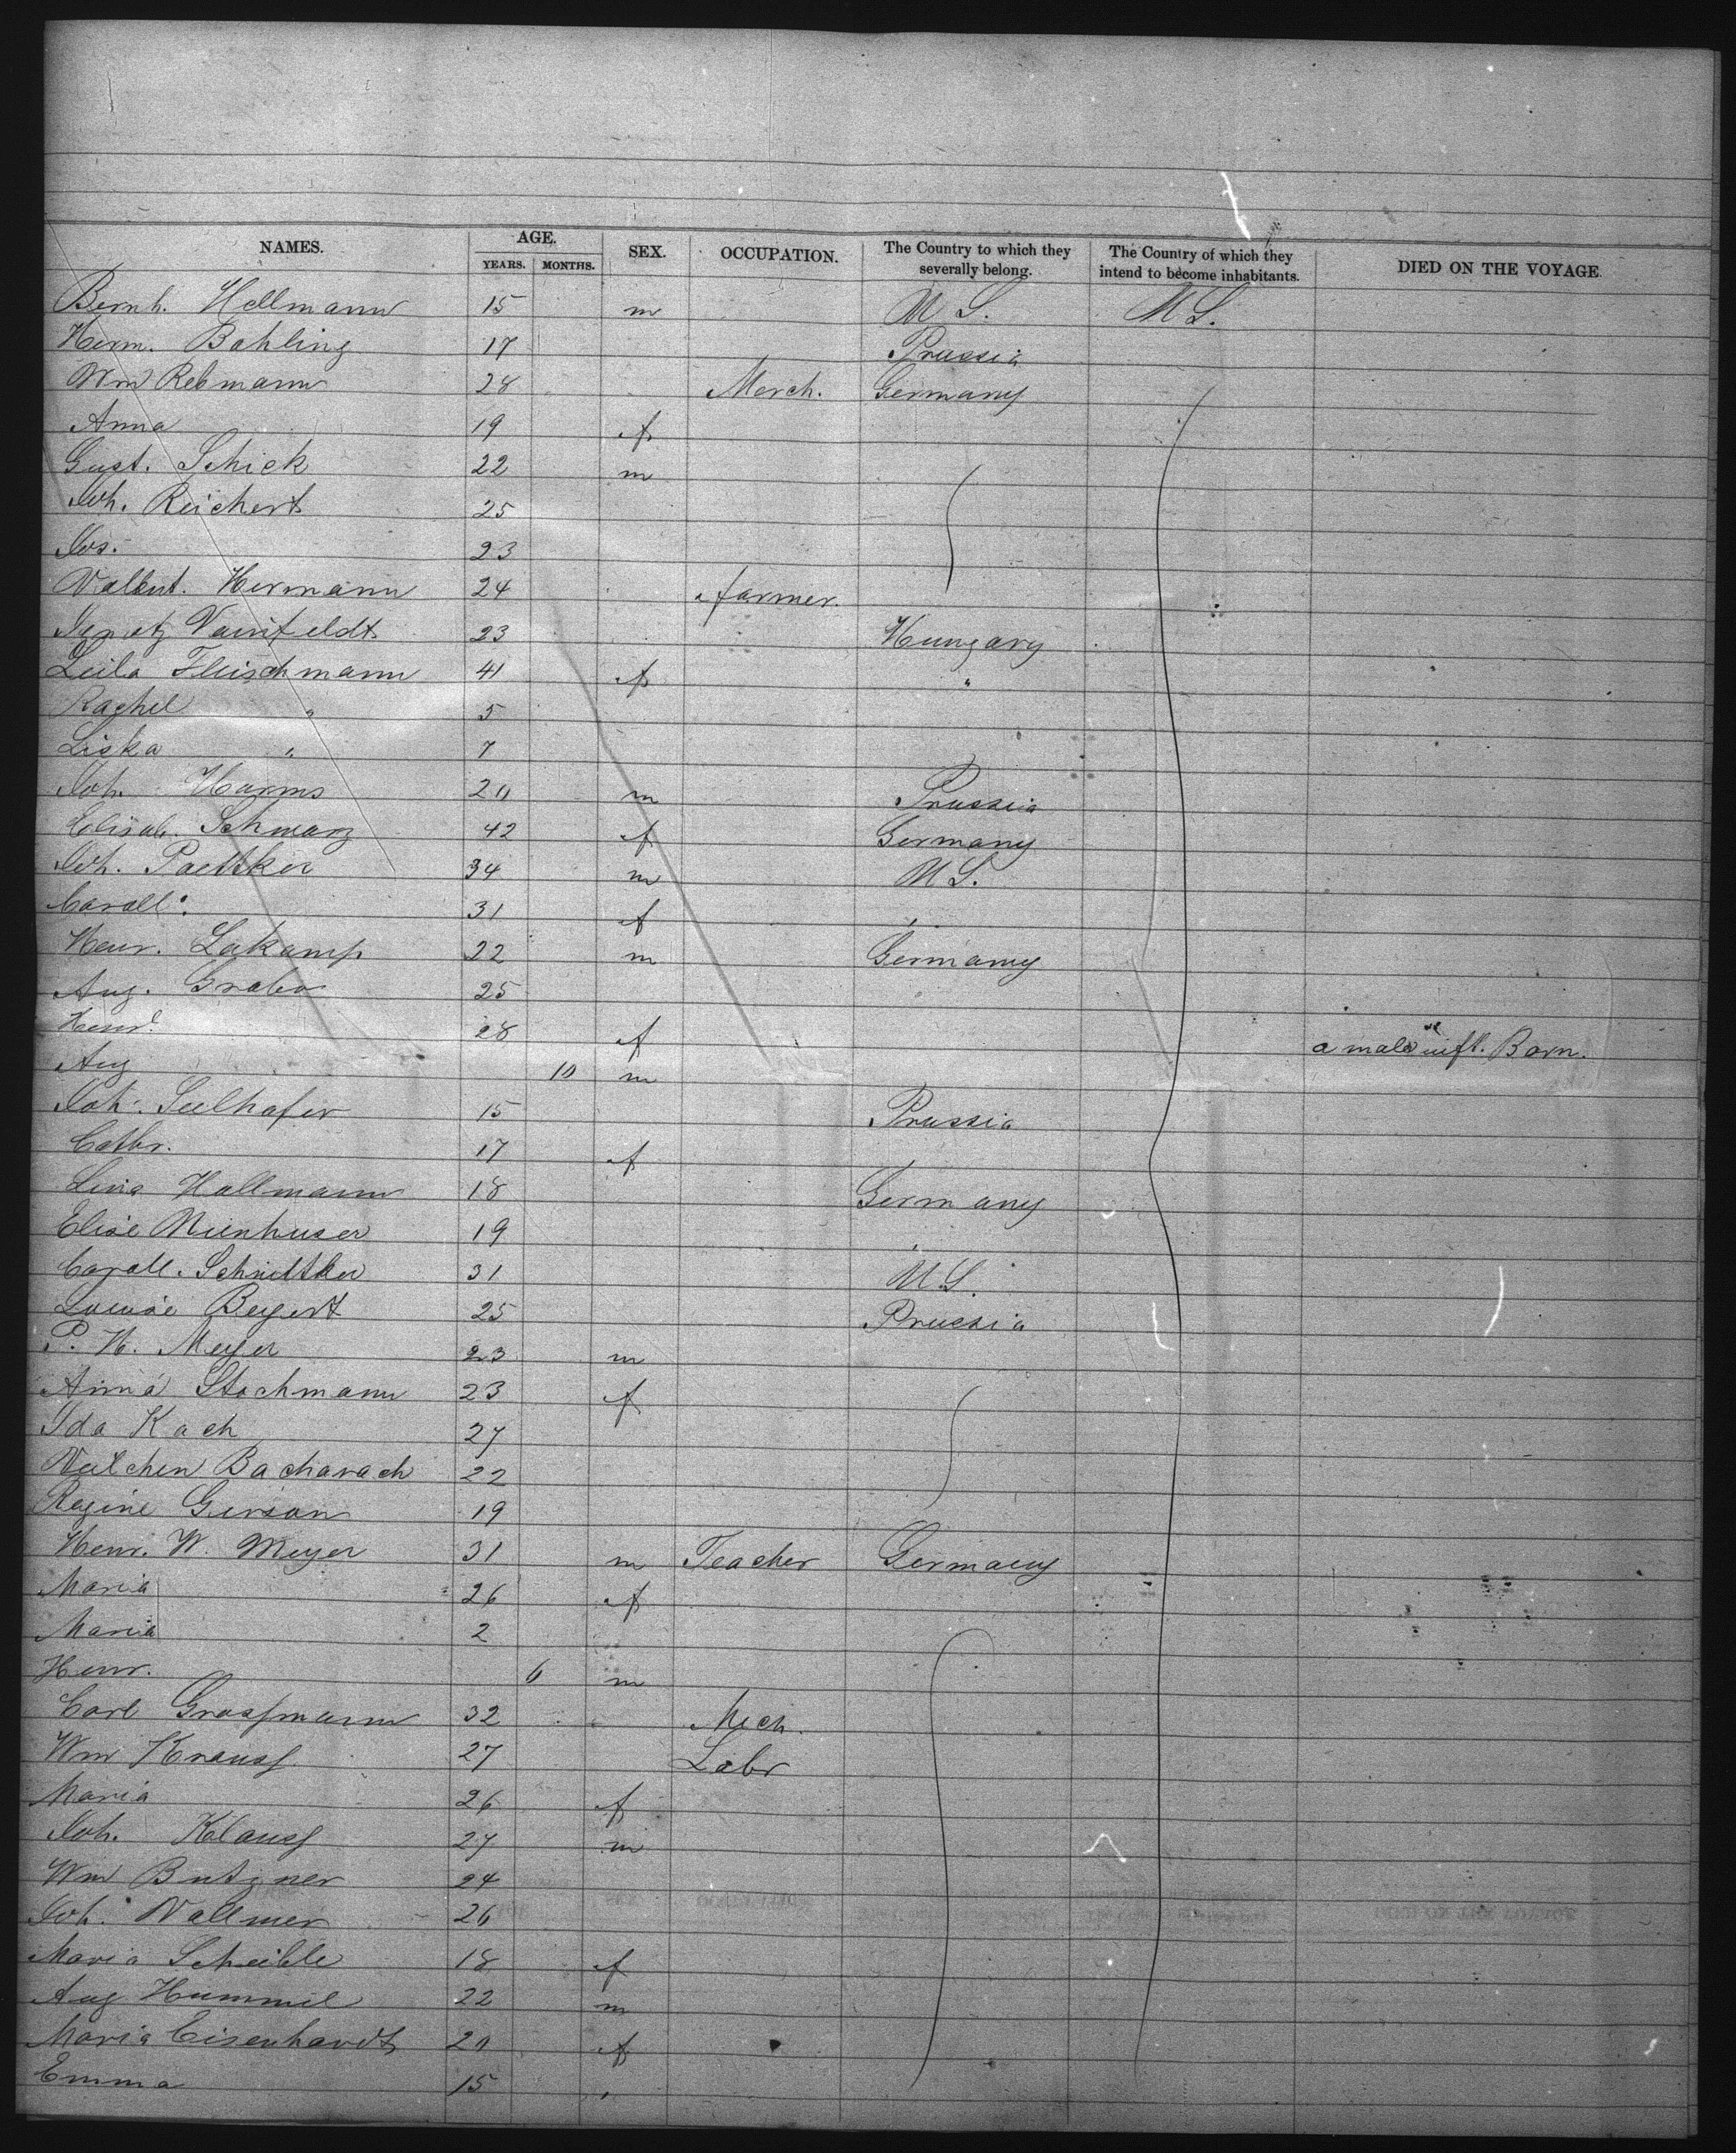 NAMES. AGE. SEX. OCCUPATION. The Country to which they severally belong. The Country of which they intend to become inhabitants. DIED ON THE VOYAGE.
YEARS. MONTHS.
Bernh. Hellmann 15 m U S. U S.
Herm. Bahling 17 Prussia
Wm Rebmann 28 Merch. Germany
Anna 19 f
Gust. Schick 22 m
Joh. Reichert 25
Jos. 23
Valent. Hermann 24 farmer.
Ignatz 23 Hungary
Leila Fleischmann 41 f "
Rachel " 5
Liska " 7
Joh. Harms 20 m Prussia
Elisab. Schwarz 42 f Germany
Joh. Paettker 34 m U S.
Caroll. 31 f
Henr. Lakamp 22 m Germany
Aug. Grabo 25
Henr. 28 f a male inft. Born.
Aug 10 m
Joh. Seelhafer 15 Prussia
Cathr. 17 f
Lina Hallmann 18 Germany
Elise Nienhuser 19
Caroll. 31 U.S.
Louise Beyert 25 Prussia
P. H. Meyer 23 m
Anna Stochmann 23 f
Ida Kach 27
Bacharach 22
Regine Gerson 19
Henr. W. Meyer 31 m Teacher Germany
Maria 26 f
Maria 2
Henr. 6 m
Carl Grossmann 32 Mech.
Wm Krauss 27 Labr
Maria 26 f
Joh. Klauss 27 m
Wm Butzner 24
Joh. Vallmer 26
Maria Scheible 18 f
Aug Hummel 22 m
Maria Eisenhardt 20 f
Emma 15